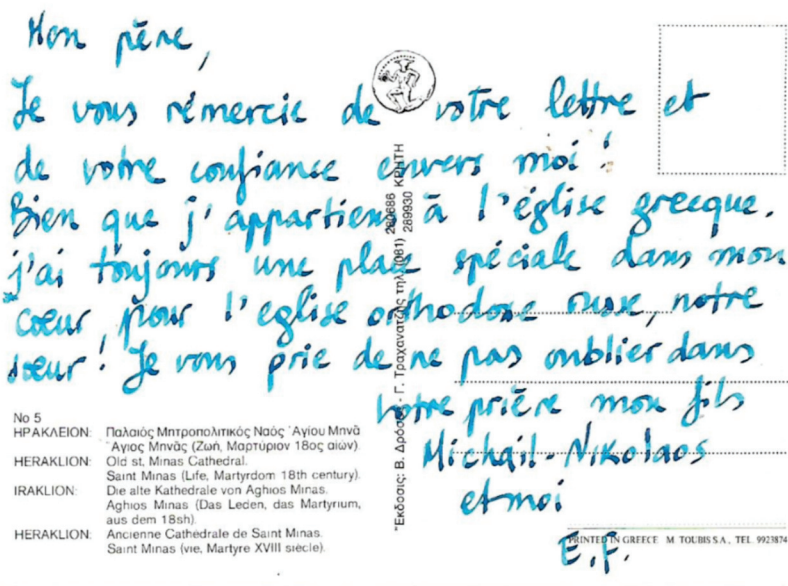 Mon père,
Je vous rémercie de votre lettre et
de votre confiance envers moi !
Bien que j'appartiens à l'église grecque.
j'ai toujours une place spéciale dans mon
cœur pour l'eglise orthodoxe russe, notre
sœur ! Je vous prie de ne pas oublier dans
votre prière mon fils
Michaïl-Nikolaos
et moi
E.F.
No 5
ΗΡΑΚΛΕΙΟΝ: Παλαιός Μητροπολιτικός Ναός Ἁγίου Μηνᾶ
Ἅγιος Μηνᾶς (Ζωή, Μαρτύριον 18ος αιών).
HERAKLION: Old st. Minas Cathedral.
Saint Minas (Life, Martyrdom 18th century).
IRAKLION: Die alte Kathedrale von Aghios Minas.
Aghios Minas (Das Leden, das Martyrium,
aus dem 18sh)
HERAKLION: Ancienne Cathédrale de Saint Minas.
Saint Minas (vie, Martyre XVIII siecle).
Ἔκδοσις: Β. Δρόσου - Γ. Τραχανατζῆς τηλ. (081)
289930 ΚΡΗΤΗ
PRINTED IN GREECE M. TOUBIS S.A., TEL. 9923874